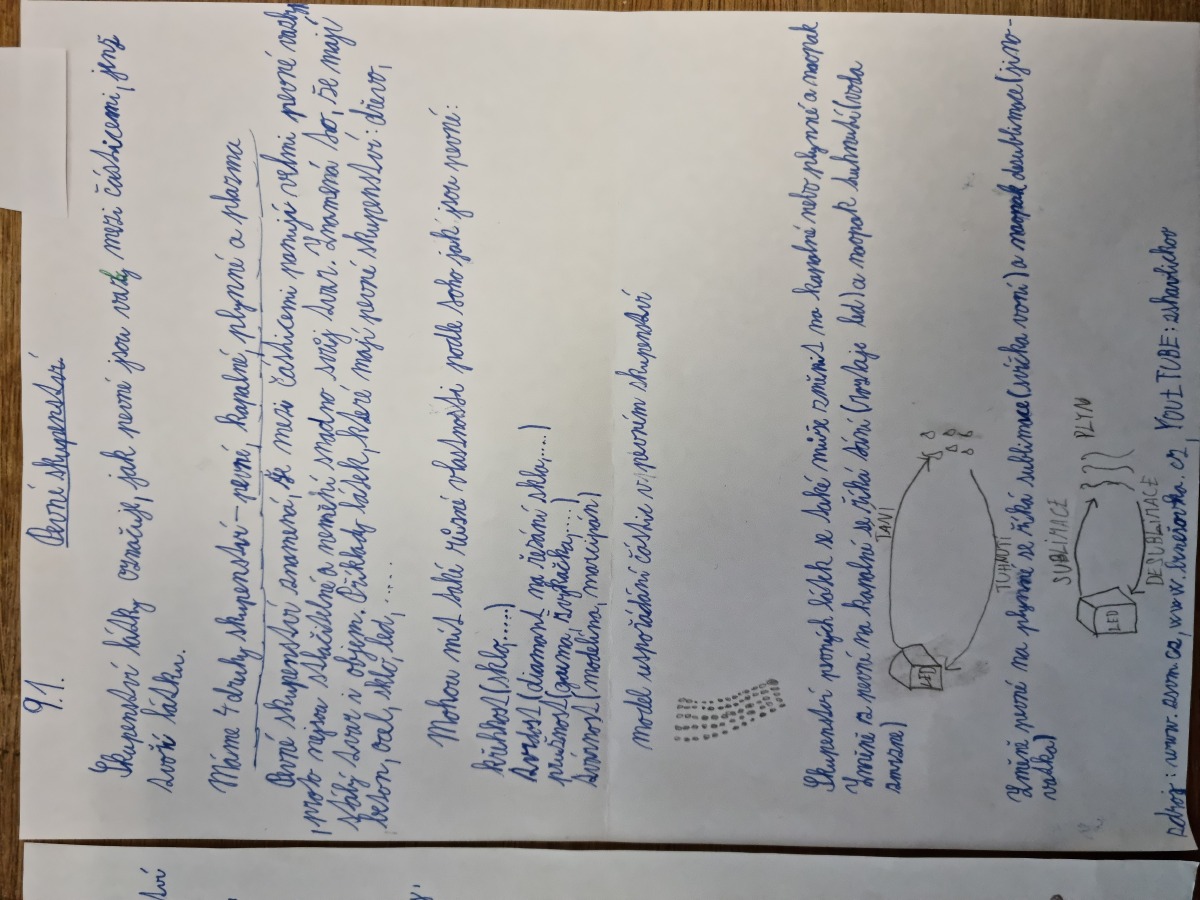 9.1. Pevné skupenství
Skupenství látky označuje, jak pevné jsou vazby mezi částicemi, jenž
tvoří látku.
Máme 4 druhy skupenství - pevné, kapalné, plynné a plazma
Pevné skupenství znamená, že mezi částicemi panují velmi pevné vazby
, proto nejsou stlačitelné a nemění snadno svůj tvar. Znamená to, že mají
stálý tvar i objem. Příklady látek, které mají pevné skupenství: dřevo,
beton, ocel, sklo, led, .....
Mohou mít také různé vlastnosti podle toho jak jsou pevné:
křehkost (sklo,.....)
tvrdost (diamant na řezání skla,....)
pružnost (guma, žvýkačky,....)
tvárnost (modelína, marcipán)
model uspořádání částic v pevném skupenství
Skupenství pevných látek se také může změnit na kapalné nebo plynné a naopak
Změně z pevné na kapalné se říká tání (roztaje led) a naopak tuhnutí (voda
zmrzne)
TÁNÍ
LED
TUHNUTÍ
Změně pevné na plynné se říká sublimace (svíčka voní) a naopak desublimace (jino-
vatka)
SUBLIMACE
LED
PLYN
DESUBLIMACE
zdroj: www.
YOUTUBE:
ství